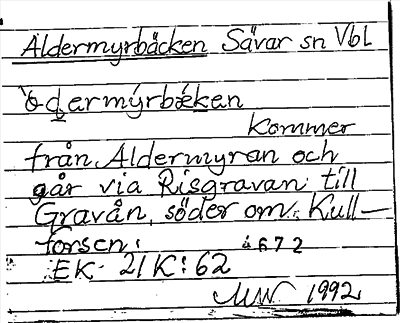 Aldermyrbäcken Sävar sn Vbl
kommer
från Aldermyran och
går via Risgravan till
Gravån, söder om Kull-
forsen.
EK 21K:62
1992